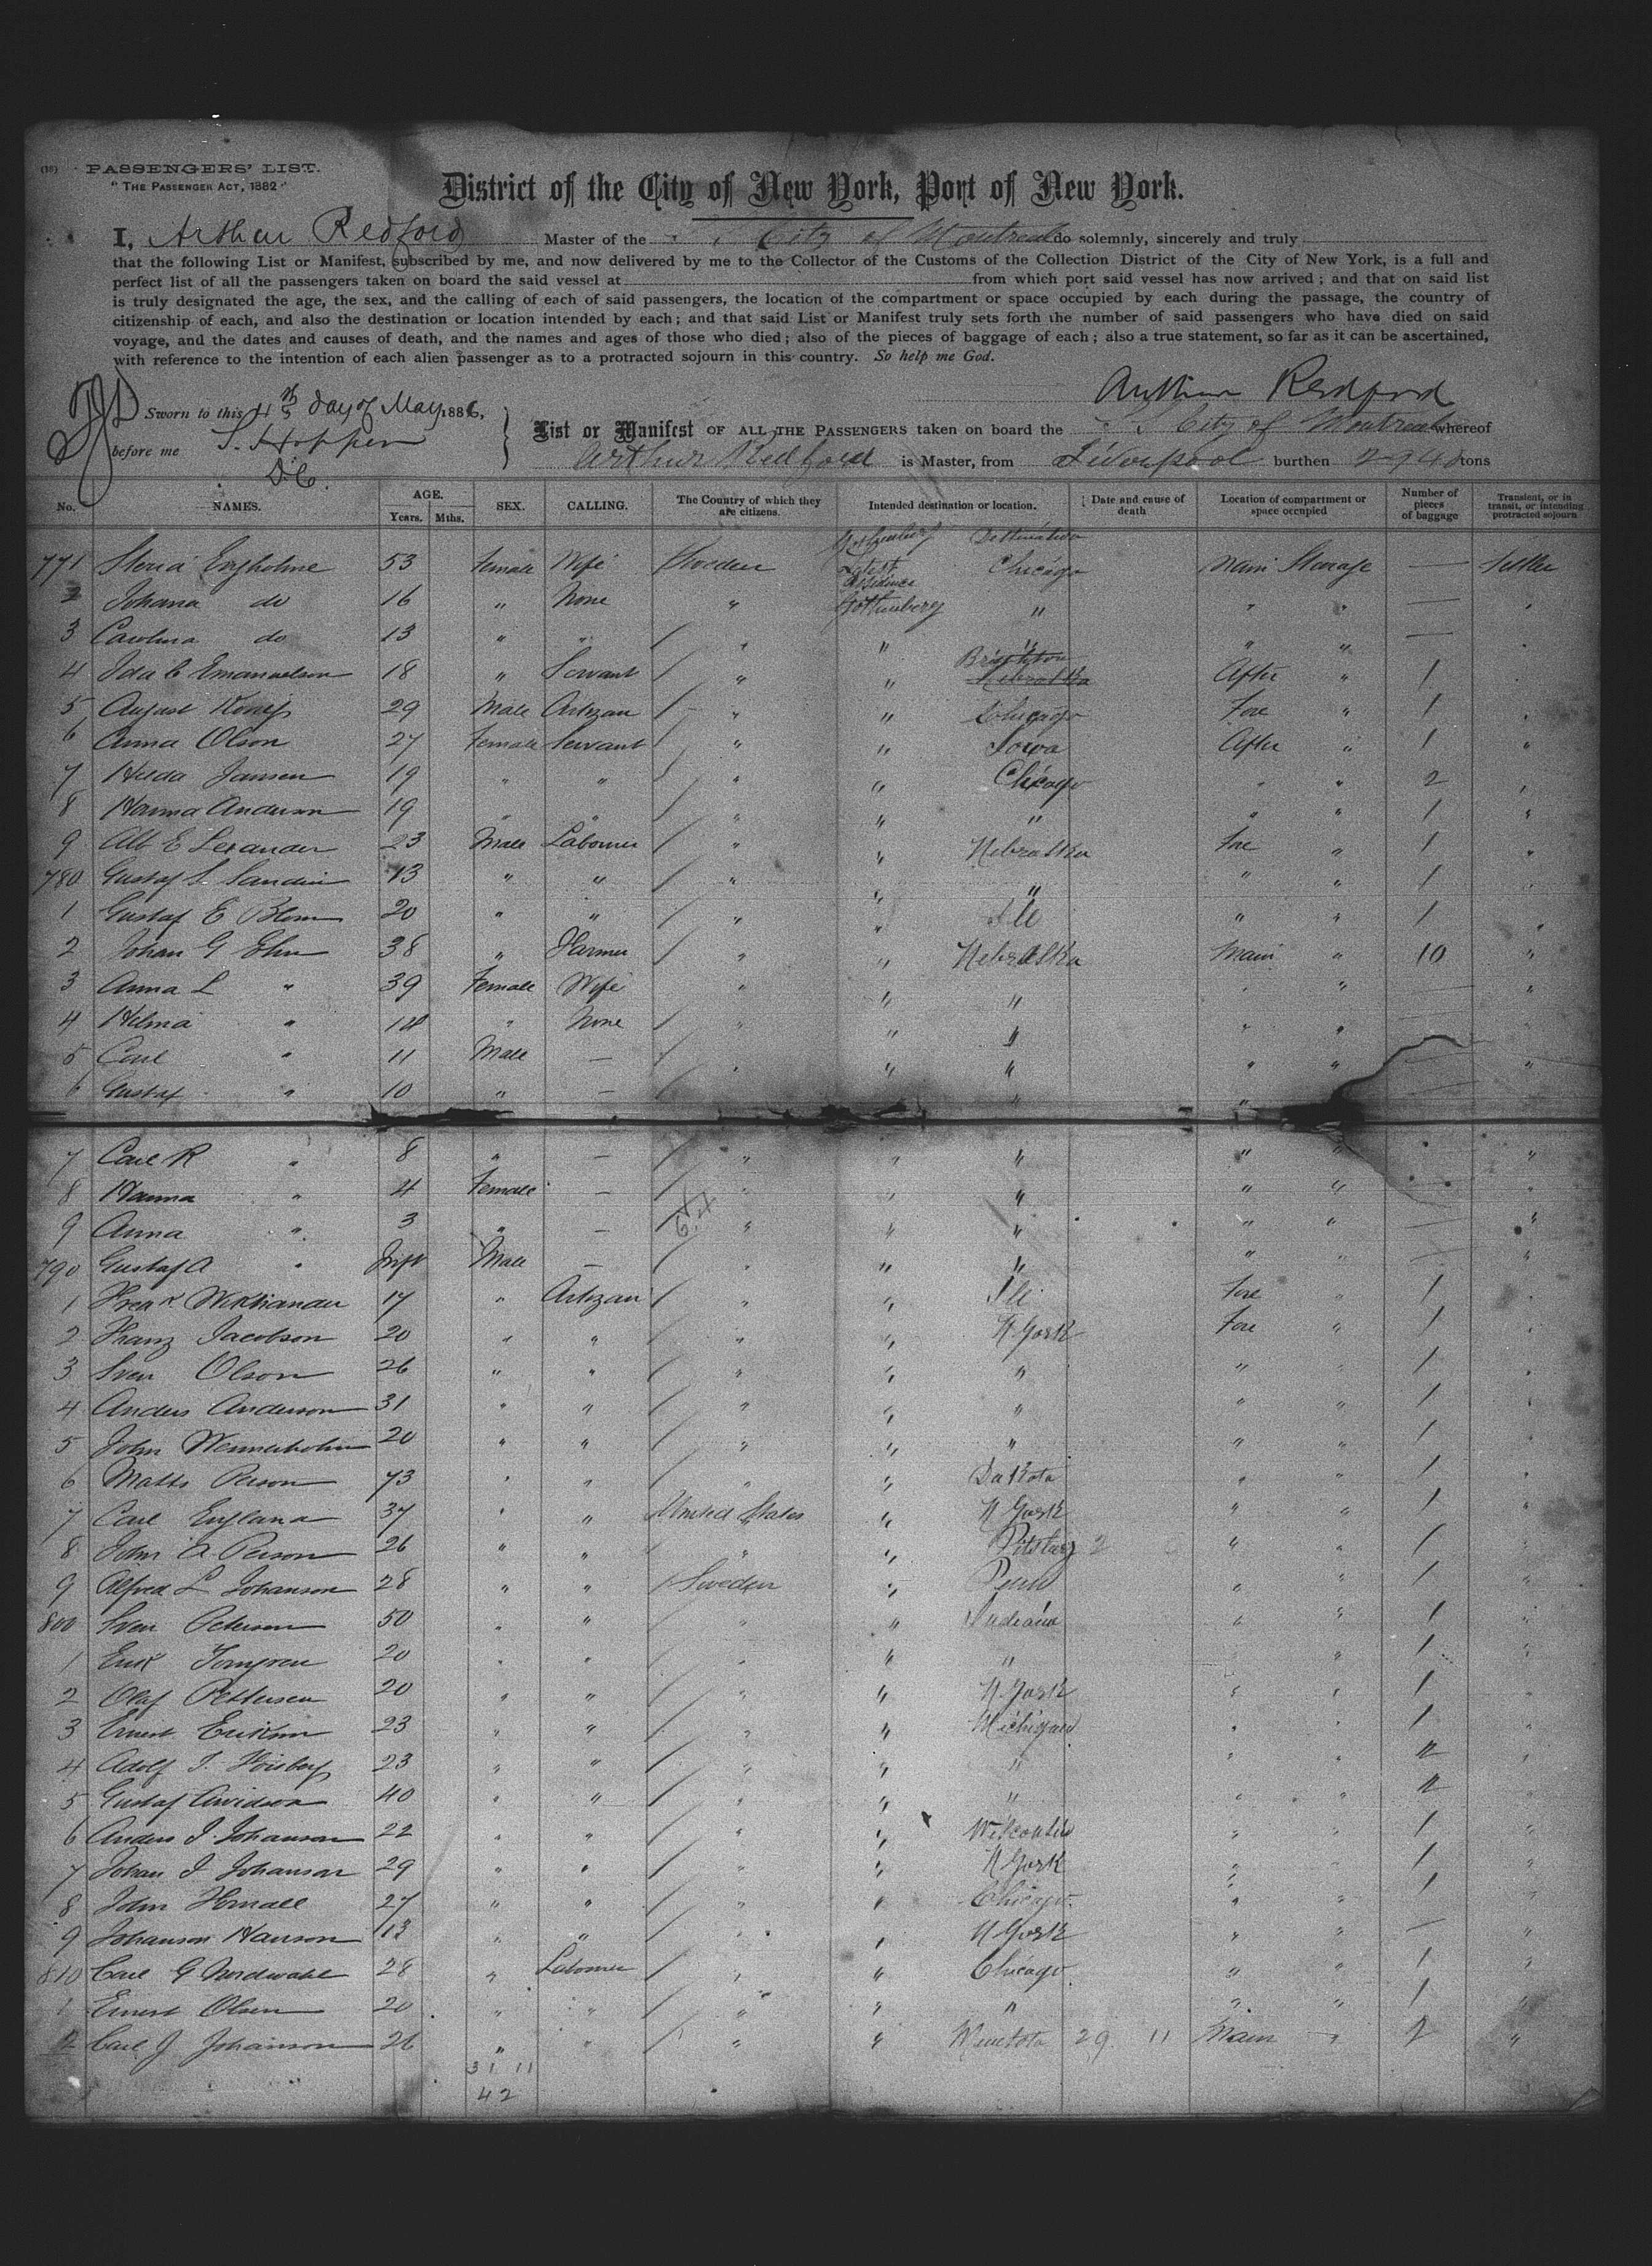 (18) PASSENGERS' LIST.
"THE PASSENGER ACT, 1882"
District of the City of New York, Port of New York.
I, Arthur Redford Master of the City of Montreal do solemnly, sincerely and truly
that the following List or Manifest, subscribed by me, and now delivered by me to the Collector of the Customs of the Collection District of the City of New York, is a full and
perfect list of all the passengers taken on board the said vessel at from which port said vessel has now arrived; and that on said list
is truly designated the age, the sex, and the calling of each of said passengers, the location of the compartment or space occupied by each during the passage, the country of
citizenship of each, and also the destination or location intended by each; and that said List or Manifest truly sets forth the number of said passengers who have died on said
voyage, and the dates and causes of death, and the names and ages of those who died; also of the pieces of baggage of each; also a true statement, so far as it can be ascertained,
with reference to the intention of each alien passenger as to a protracted sojourn in this country. So help me God.
Arthur Redford
Sworn to this 4th day of May 1886,
before me S. Hopper
D.C.
List or Manifest OF ALL THE PASSENGERS taken on board the S S City of Montreal whereof
Arthur Redford is Master, from Liverpool burthen tons
No. NAMES. AGE. Years. Mths. SEX. CALLING. The Country of which they are citizens. Intended destination or location. Date and cause of death Location of compartment or space occupied Number of pieces of baggage Transient, or in transit, or intending protracted sojourn
Destination
771 Engholme 53 Female Wife Sweden Latest Residence Chicago Main Steerage — Settler
2 Johana do 16 " None " Gothenberg " " " — "
3 Carolina do 13 " " / " " " " " —
4 Ida C Emanuelson 18 " Servant / " " Brighton After " 1
5 August 29 Male Artizan / " " Chicago Fore " 1 "
6 Anna Olson 27 Female Servant / " " Iowa After " 1 "
7 Hilda Jansen 19 " " / " " Chicago " " 2 "
8 Hanna Anderson 19 " " / " " " " " 1 "
9 Alb E 23 Male Labourer / " " Nebraska Fore " 1 "
780 Gustaf S Sandin 13 " " / " " " " " 1 "
1 Gustaf E Blom 20 " " / " " Ill " " 1 "
2 Johan G 38 " Farmer / " " Nebraska Main " 10 "
3 Anna L " 39 Female Wife " " " " " — "
4 Hilma " " None / " " " " " "
5 Carl " 11 Male — / " " " " " — "
6 Gustaf " 10 " — / " "
7 Carl R " 8 " — / " " " " " "
8 Hanna " 4 Female — / " " " " " "
9 Anna " 3 " — / " " " " " — "
790 Gustaf A " Inft Male — / " " " " " — "
1 17 " Artizan / " " Ill Fore " 1 "
2 Franz Jacobson 20 " " / " " N York Fore " 1 "
3 Sven Olson 26 " " / " " " " " 1 "
4 Anders Anderson 31 " " / " " " " " 1 "
5 John Wennerholm 20 " " / " " " " " 1 "
6 Matts Person 73 " " / " " Dakota " " 1 "
7 Carl 37 " " United States " N York " " 1 "
8 John A Person 26 " " " " Pitsburg 2 " " 1 "
9 Alfred L Johanson 28 " " / Sweden " Penn " " 1 "
800 Sven Peterson 50 " " / " " Indiana " " 1 "
1 Erik 20 " " / " " " " " 1 "
2 Olaf Pettersen 20 " " / " " N. York " " 1 "
3 Ernest Erikson 23 " " / " " Michigan " " 1 "
4 Adolf 23 " " / " " " " " "
5 Gustaf Arvidson 40 " " / " " " " " "
6 Anders J Johanson 22 " " / " " Wisconsin " " 1 "
7 Johan J Johanson 29 " " / " " N York " " 1 "
8 John 27 " " / " " Chicago " " 1 "
9 Johanson Hanson 13 " " / " " N York " " — "
810 Carl G Nordwahl 28 " Labourer / " " Chicago " " 1 "
1 Ernest Olsen 20 " " / " " " " " 1 "
2 Carl J Johanson 26 " " / " " 29 11 Main " 2 "
31 11
42